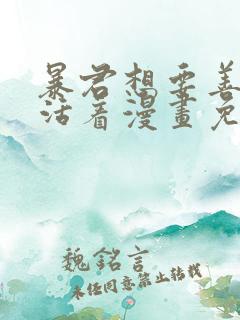 暴君想要善
活着漫畫免
魏銘言
未经同意禁止转载